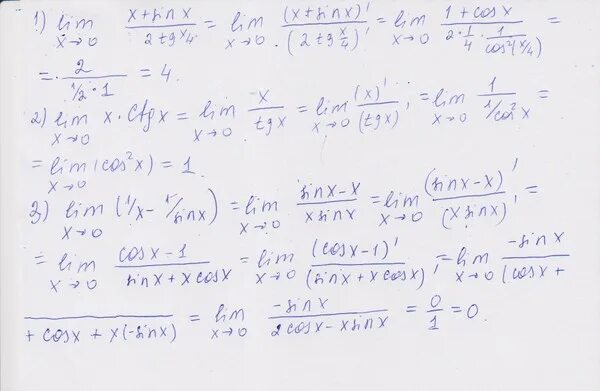 1) lim x→0 (x+sinx)/(2tg x/4) = lim x→0 (x+sinx)'/(2tg x/4)' = lim x→0 (1+cosx)/(2·1/4·1/cos²(x/4)) =
= 2/(1/2·1) = 4.
2) lim x→0 x·ctgx = lim x→0 x/tgx = lim x→0 (x)'/(tgx)' = lim x→0 1/(1/cos²x) =
= lim x→0 (cos²x) = 1.
3) lim x→0 (1/x - 1/sinx) = lim x→0 (sinx-x)/(xsinx) = lim x→0 (sinx-x)'/(xsinx)' =
= lim x→0 (cosx-1)/(sinx+xcosx) = lim x→0 (cosx-1)'/(sinx+xcosx)' = lim x→0 -sinx/(cosx+
+cosx+x(-sinx) = lim x→0 -sinx/(2cosx-xsinx) = 0/1 = 0.